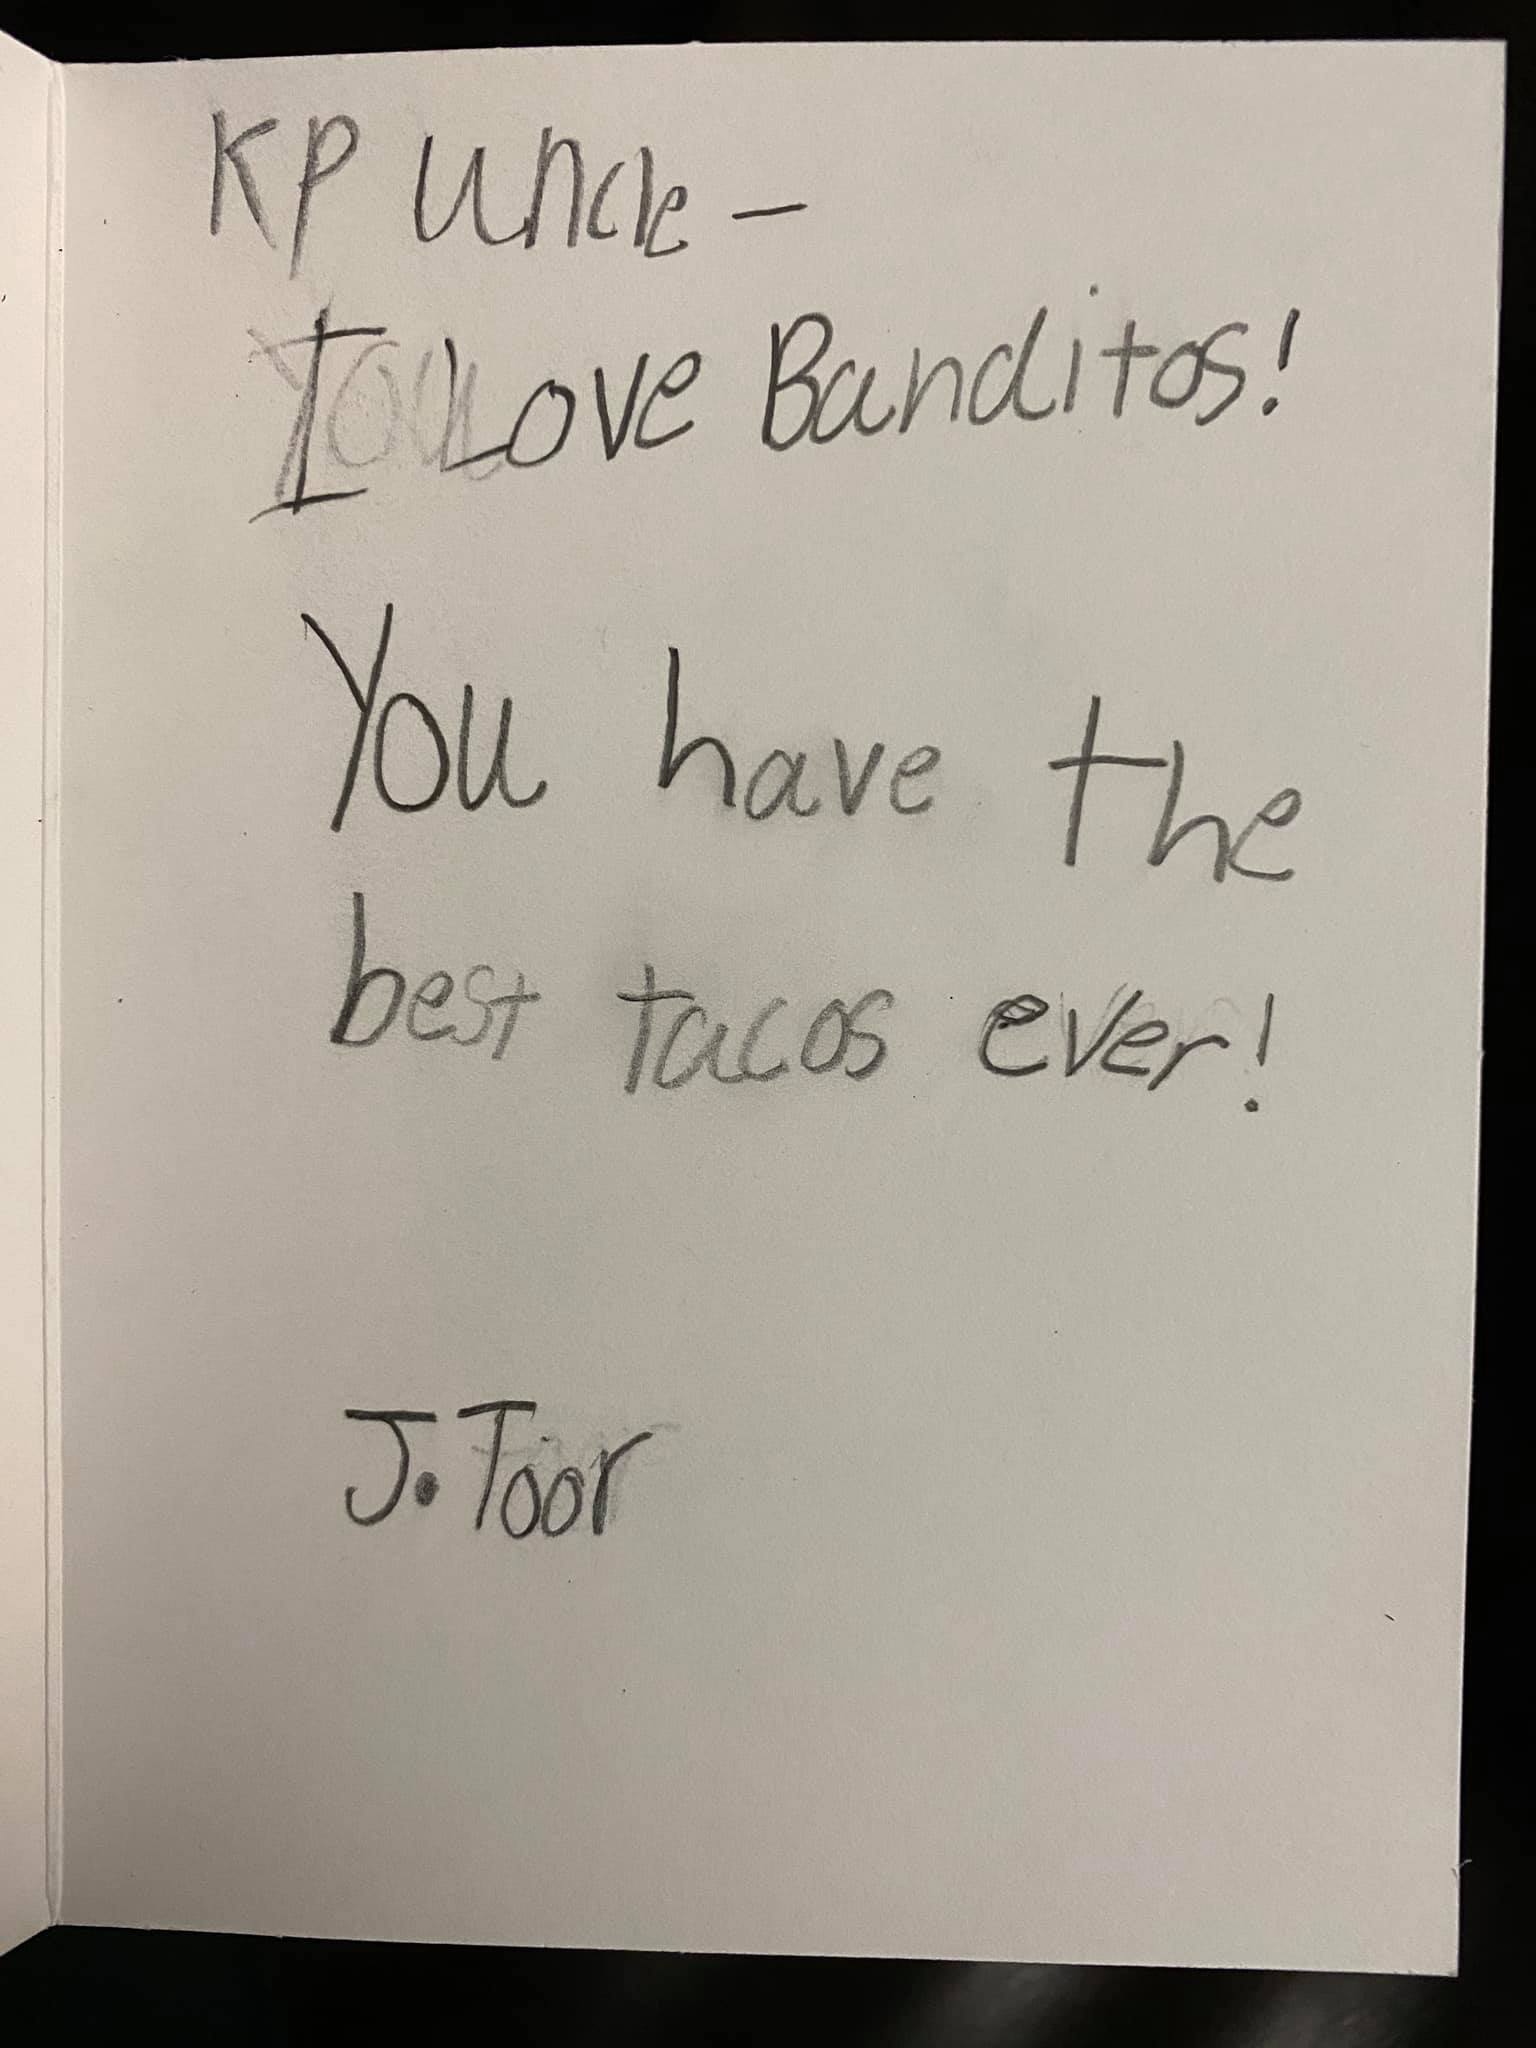 KP Uncle -
I Love Banditos!
You have the
best tacos ever!
J. Toor